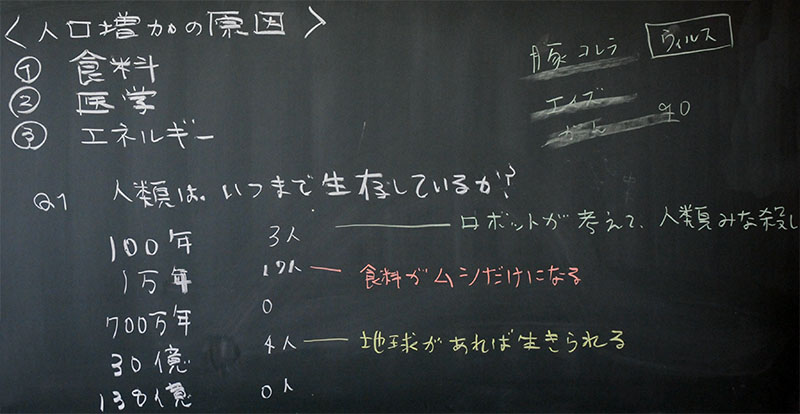 〈人口増加の原因〉
① 食料
② 医学
③ エネルギー
豚コレラ ウィルス
エイズ
がん 90
Q1 人類は、いつまで生存しているか?
100年 3人 ロボットが考えて、人類みな殺し
1万年 17人 食料がムシだけになる
700万年 0
30億 4人 地球があれば生きられる
138億 0人